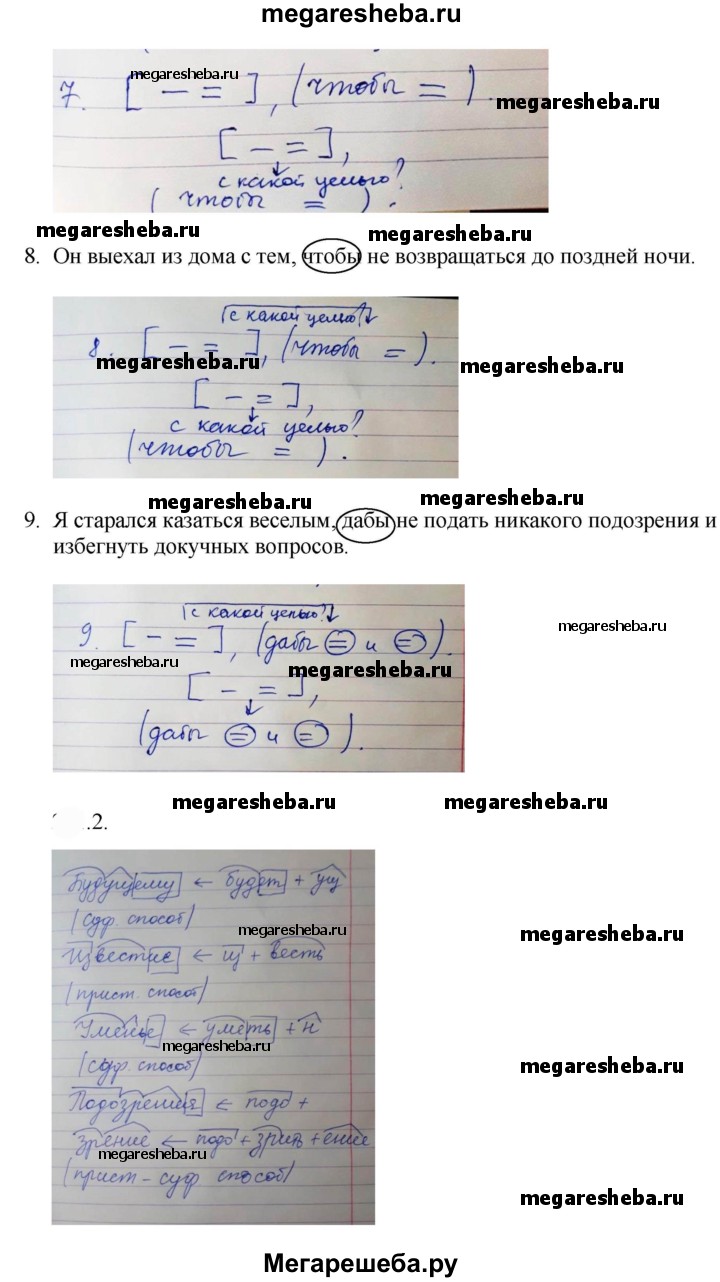 megaresheba.ru
7. [ — = ], (чтобы = ).
megaresheba.ru
megaresheba.ru
[ — = ],
с какой целью?
( чтобы = ).
megaresheba.ru
megaresheba.ru
8. Он выехал из дома с тем, чтобы не возвращаться до поздней ночи.
с какой целью?
8. [ — = ], (чтобы = ).
megaresheba.ru
megaresheba.ru
[ — = ],
с какой целью?
(чтобы = ).
megaresheba.ru
megaresheba.ru
9. Я старался казаться веселым, дабы не подать никакого подозрения и
избегнуть докучных вопросов.
с какой целью?
9. [ — = ], (дабы = и = ).
megaresheba.ru
megaresheba.ru
megaresheba.ru
[ — = ],
(дабы = и = ).
megaresheba.ru
megaresheba.ru
.2.
Будущему ← будет + ущ
(суф. способ)
megaresheba.ru
megaresheba.ru
Известие ← из + весть
(прист. способ)
Уменье ← уметь + н
megaresheba.ru
(суф. способ)
megaresheba.ru
Подозрения ← подо +
зрение ← подо + зрить + ение
megaresheba.ru
(прист - суф способ)
megaresheba.ru
Мегарешеба.ру